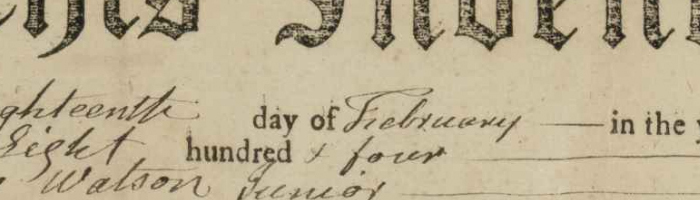 This Indent
ghteenth day of February in the y
Eight hundred & four
Watson Junior